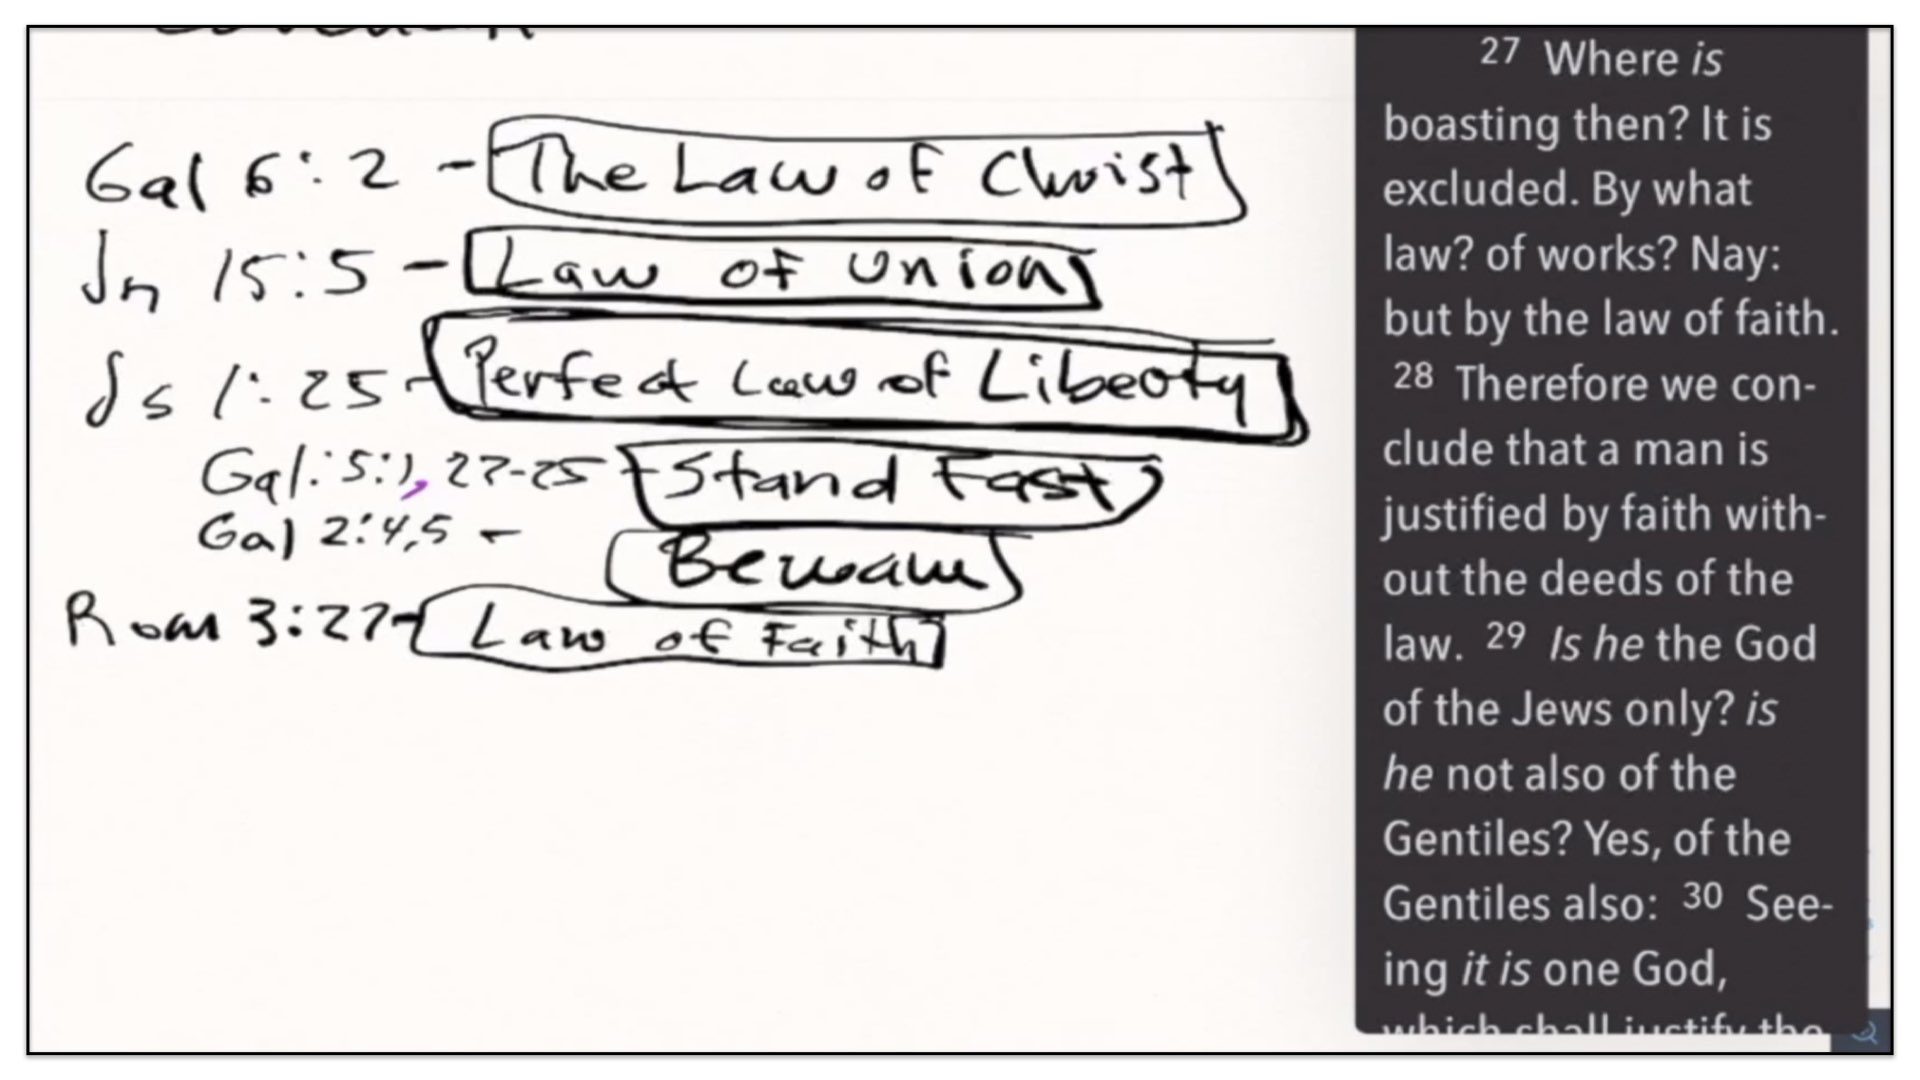 Gal 6:2 - The Law of Christ
Jn 15:5 - Law of Union
Js 1:25 - Perfect Law of Liberty
Gal. 5:1, 22-25 - Stand Fast
Gal 2:4,5 - Beware
Rom 3:27 - Law of Faith
27 Where is
boasting then? It is
excluded. By what
law? of works? Nay:
but by the law of faith.
28 Therefore we con-
clude that a man is
justified by faith with-
out the deeds of the
law. 29 Is he the God
of the Jews only? is
he not also of the
Gentiles? Yes, of the
Gentiles also: 30 See-
ing it is one God,
which shall justify the